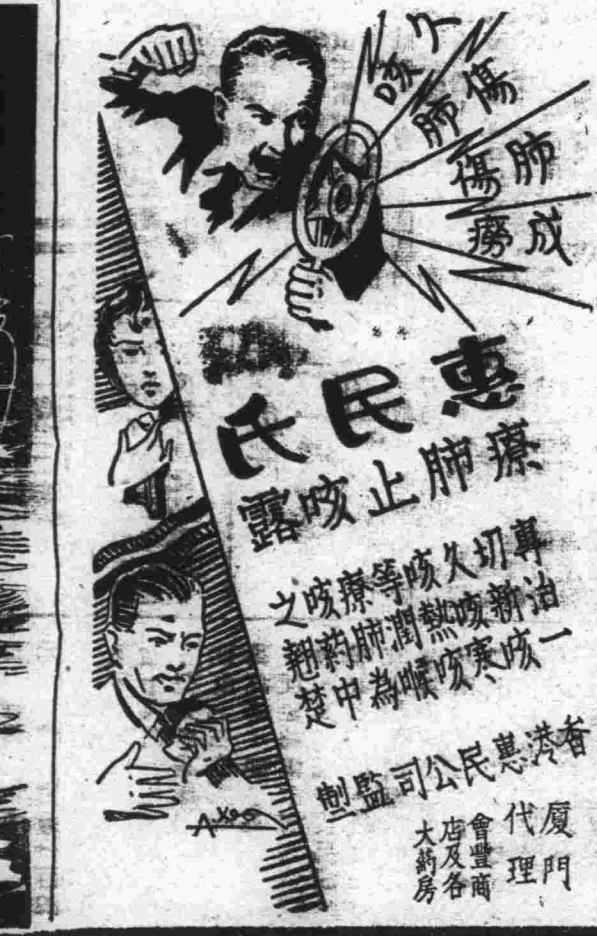 久咳
傷肺
肺傷
成癆
惠民氏
療肺止咳露
專治一
切新咳
久咳寒
咳熱咳
等潤喉
療肺為
咳葯中
之翹楚
香港惠民公司監製
厦門
代理
會豐商
店及各
大葯房